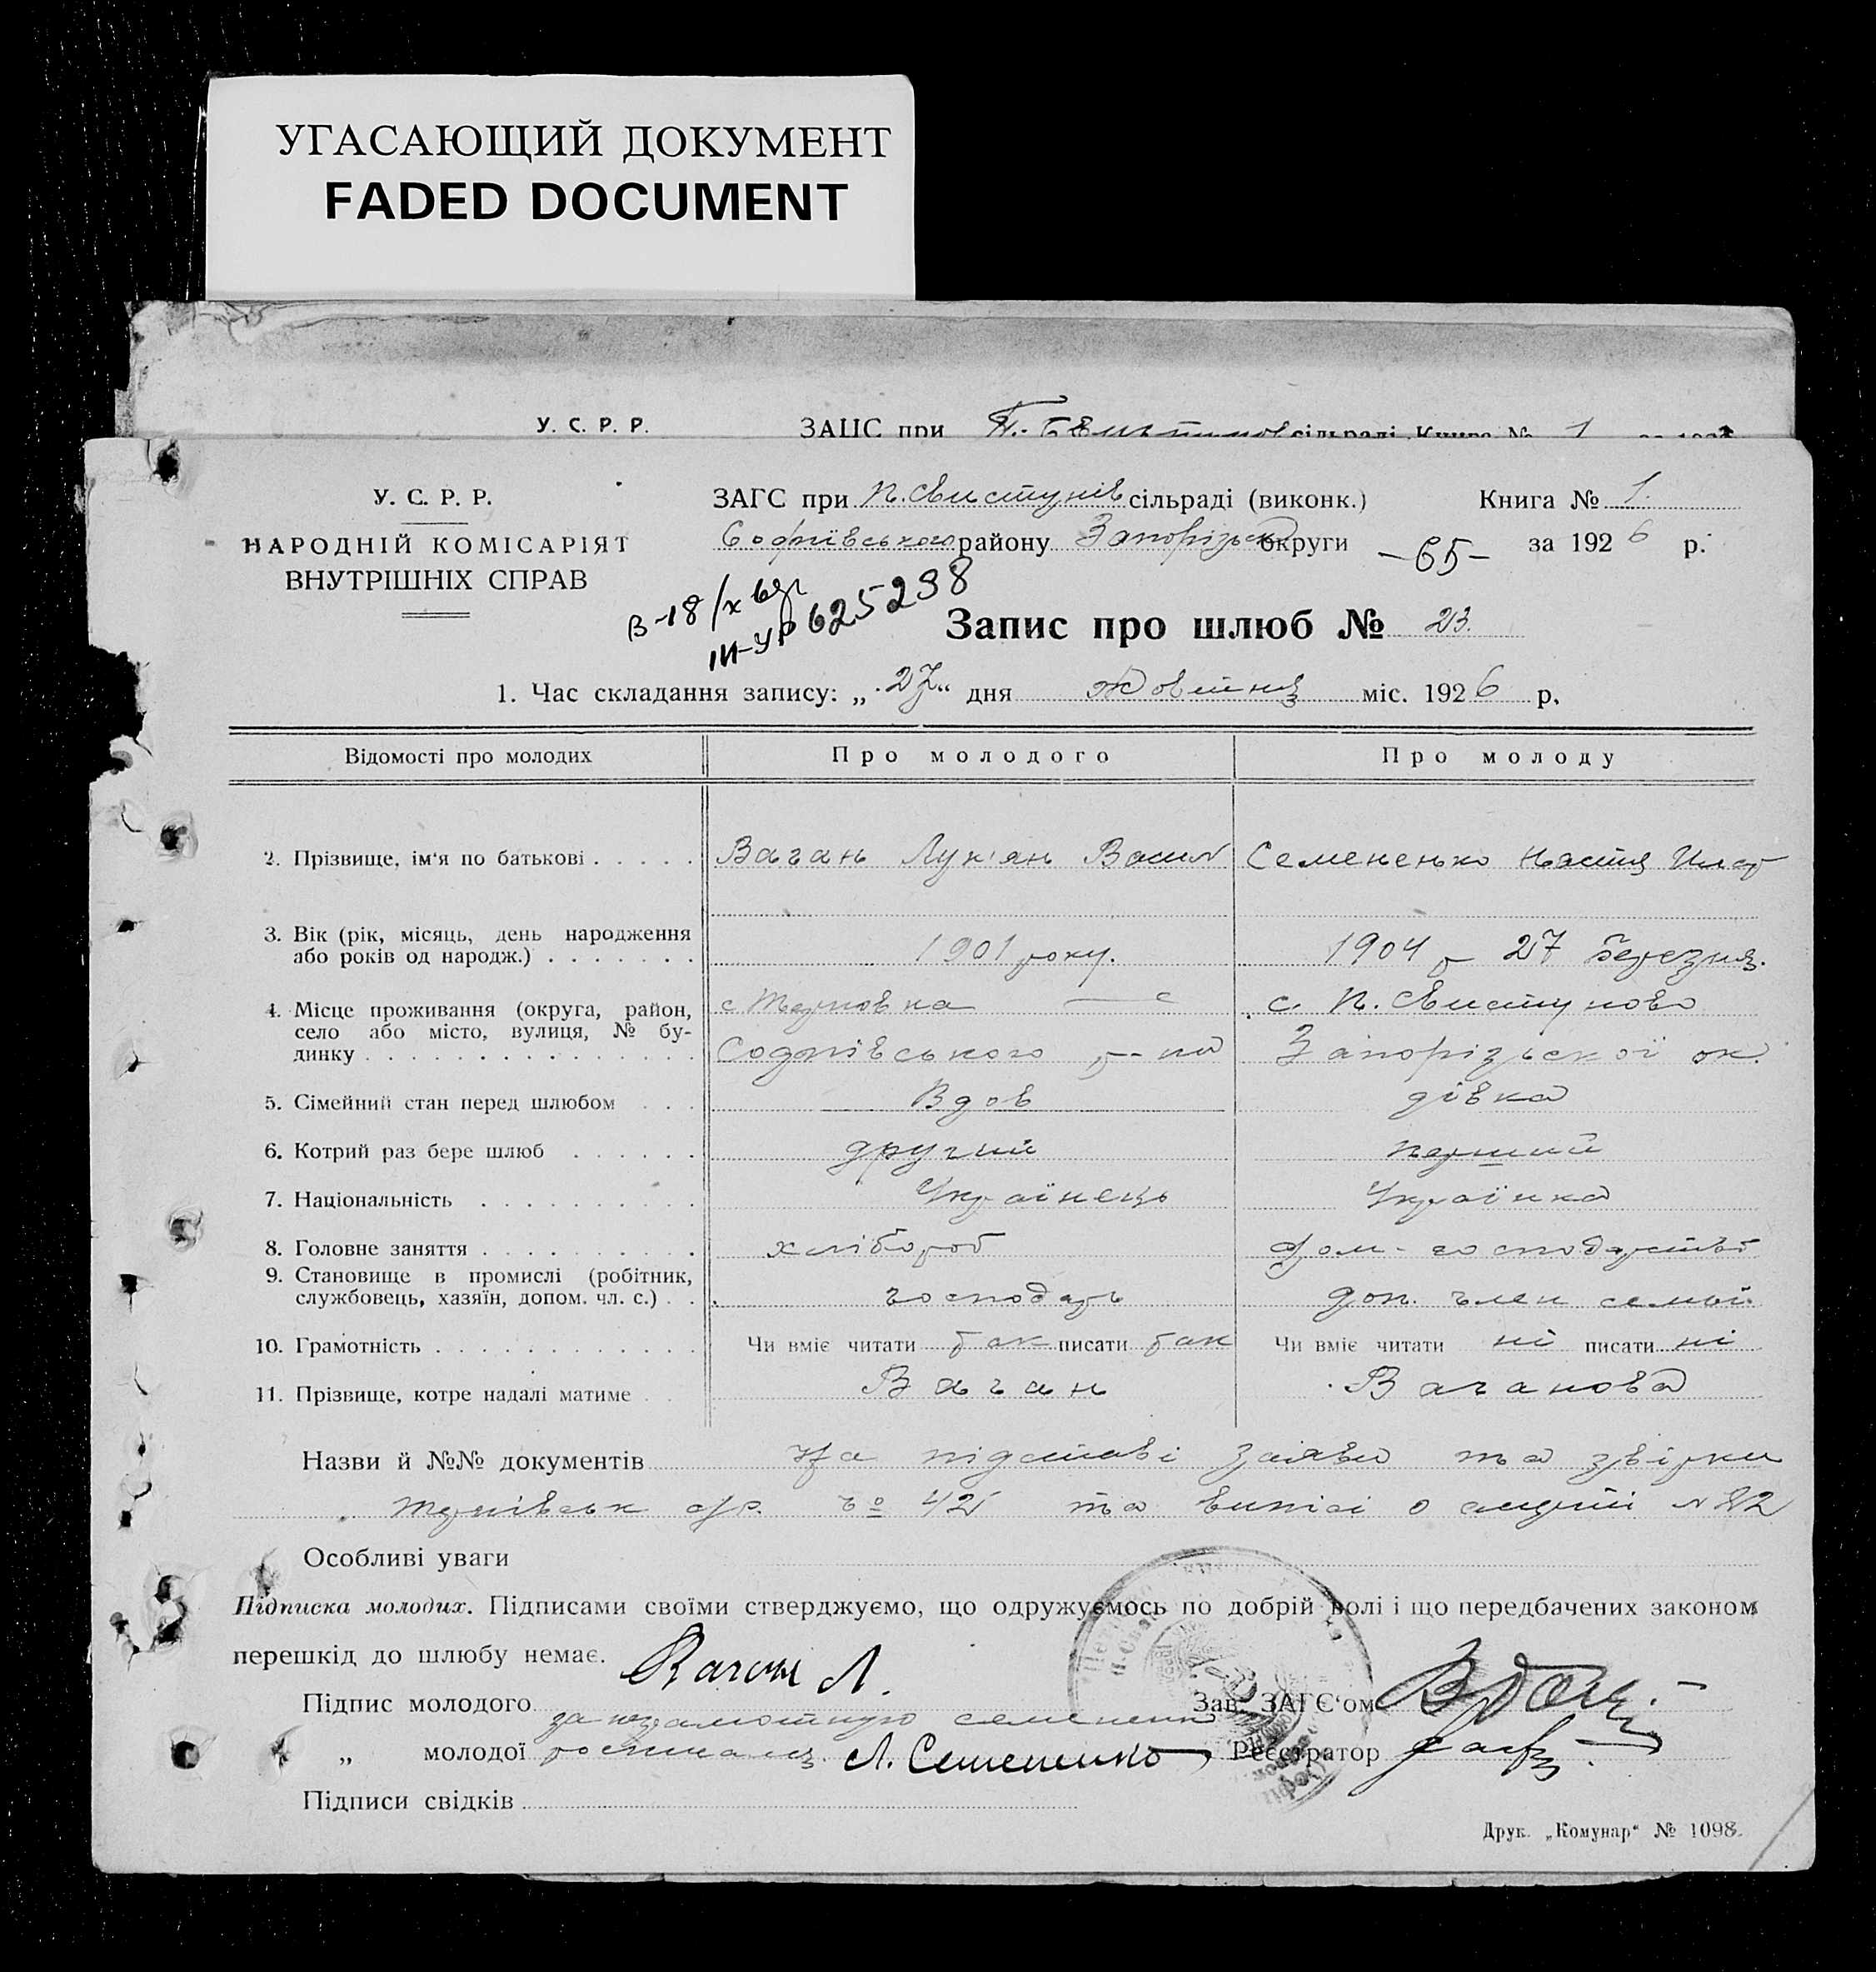 УГАСАЮЩИЙ ДОКУМЕНТ
FADED DOCUMENT
У. С. Р. Р. ЗАГС при сільраді Книга № 1
У. С. Р. Р.
НАРОДНІЙ КОМІСАРІЯТ
ВНУТРІШНІХ СПРАВ
ЗАГС при П. Свистунів сільраді (виконк.) Книга № 1.
Софіївського району Запорізької округи -65- за 1926 р.
В-18/х
III-УР 625238
Запис про шлюб № 23.
1. Час складання запису: „27“ дня Жовтня міс. 1926 р.
Відомості про молодих Про молодого Про молоду
2. Прізвище, ім‘я по батькові Ваган Лук'ян Васил Семененько Настя
3. Вік (рік, місяць, день народження
або років од народж.) 1901 року. 1904 р 27 березня.
4. Місце проживання (округа, район,
село або місто, вулиця, № бу-
динку
с Терновка
Софіївського р-на
с. П. Свистуново
Запорізької ок.
5. Сімейний стан перед шлюбом Вдов дівка
6. Котрий раз бере шлюб другий перший
7. Національність Українець Українка
8. Головне заняття хлібороб дом. господарстві
9. Становище в промислі (робітник,
службовець, хазяїн, допом. чл. с.) господарь доп. член семьї.
10. Грамотність Чи вміє читати так писати так Чи вміє читати ні писати ні
11. Прізвище, котре надалі матиме Ваган Ваганова
Назви й №№ документів На підставі заяви та звірки
Тернівськ с/р. № 421 та виписі о смерті № 22
Особливі уваги
Підписка молодих. Підписами своїми стверджуємо, що одружуємось по добрій волі і що передбачених законом
перешкід до шлюбу немає.
Підпис молодого Ваган Л. Зав. ЗАГС‘ом
за неграмотную семененк
„ молодої росписался Л. Семененко Реєстратор
Підписи свідків
Друк. „Комунар“ № 1098.